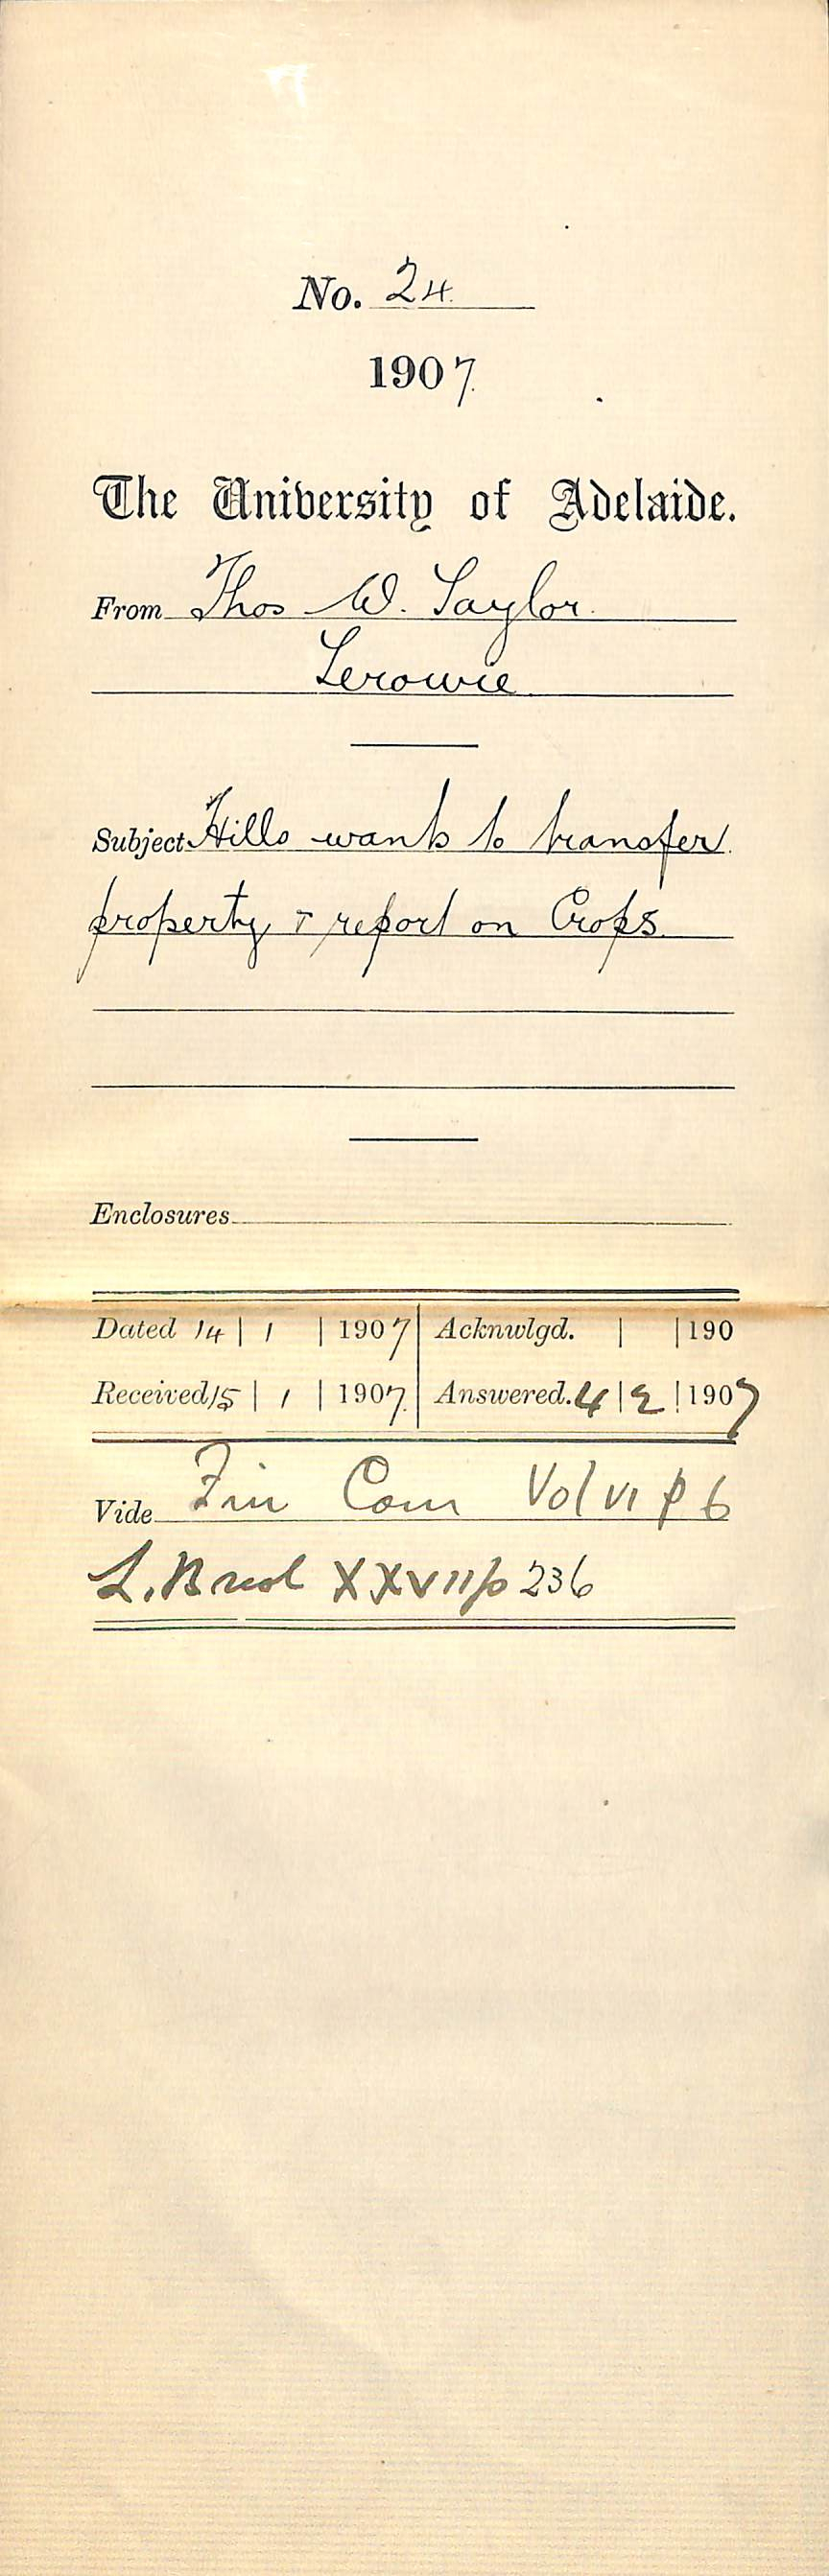 No. 24
1907
The University of Adelaide.
From Thos W. Taylor
Terowie
Subject Hills wants to transfer
property & report on Crops
Enclosures
Dated 14 | 1 | 1907 | Acknwlgd. | | 190
Received 15 | 1 | 1907 | Answered. 4 | 2 | 1907
Vide Fin Com Vol VI p 6
L. B XXVII p 236